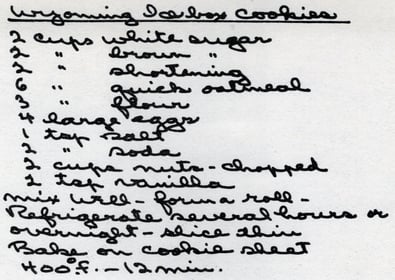 Wyoming Icebox Cookies
2 cups white sugar
2 " brown "
2 " shortening
6 " quick oatmeal
3 " flour
4 large eggs
1 tsp salt
2 " soda
2 cups nuts - chopped
2 tsp vanilla
Mix well - form a roll -
Refrigerate several hours or
overnight - slice thin
Bake on cookie sheet
400° F. - 12 min.